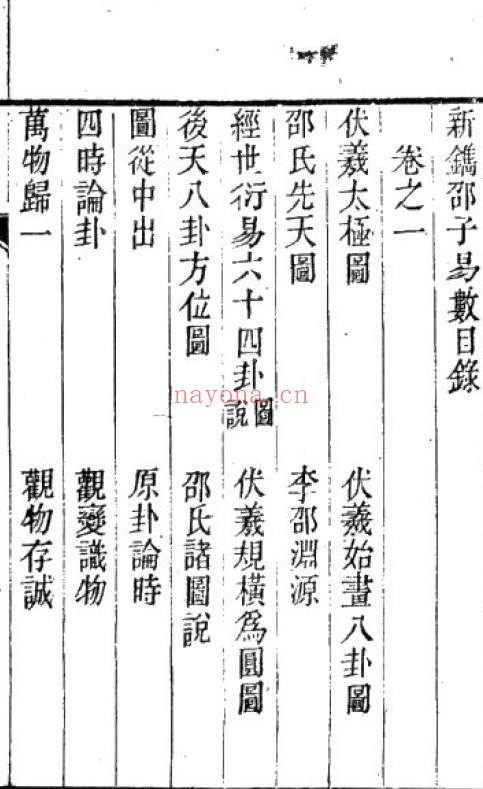 新鐫邵子易數目錄
卷之一
伏羲太極圖 伏羲始畫八卦圖
邵氏先天圖 李邵淵源
經世衍易六十四卦圖說 伏羲規橫爲圓圖
後天八卦方位圖 邵氏諸圖說
圖從中出 原卦論時
四時論卦 觀變識物
萬物歸一 觀物存誠
nayona.cn